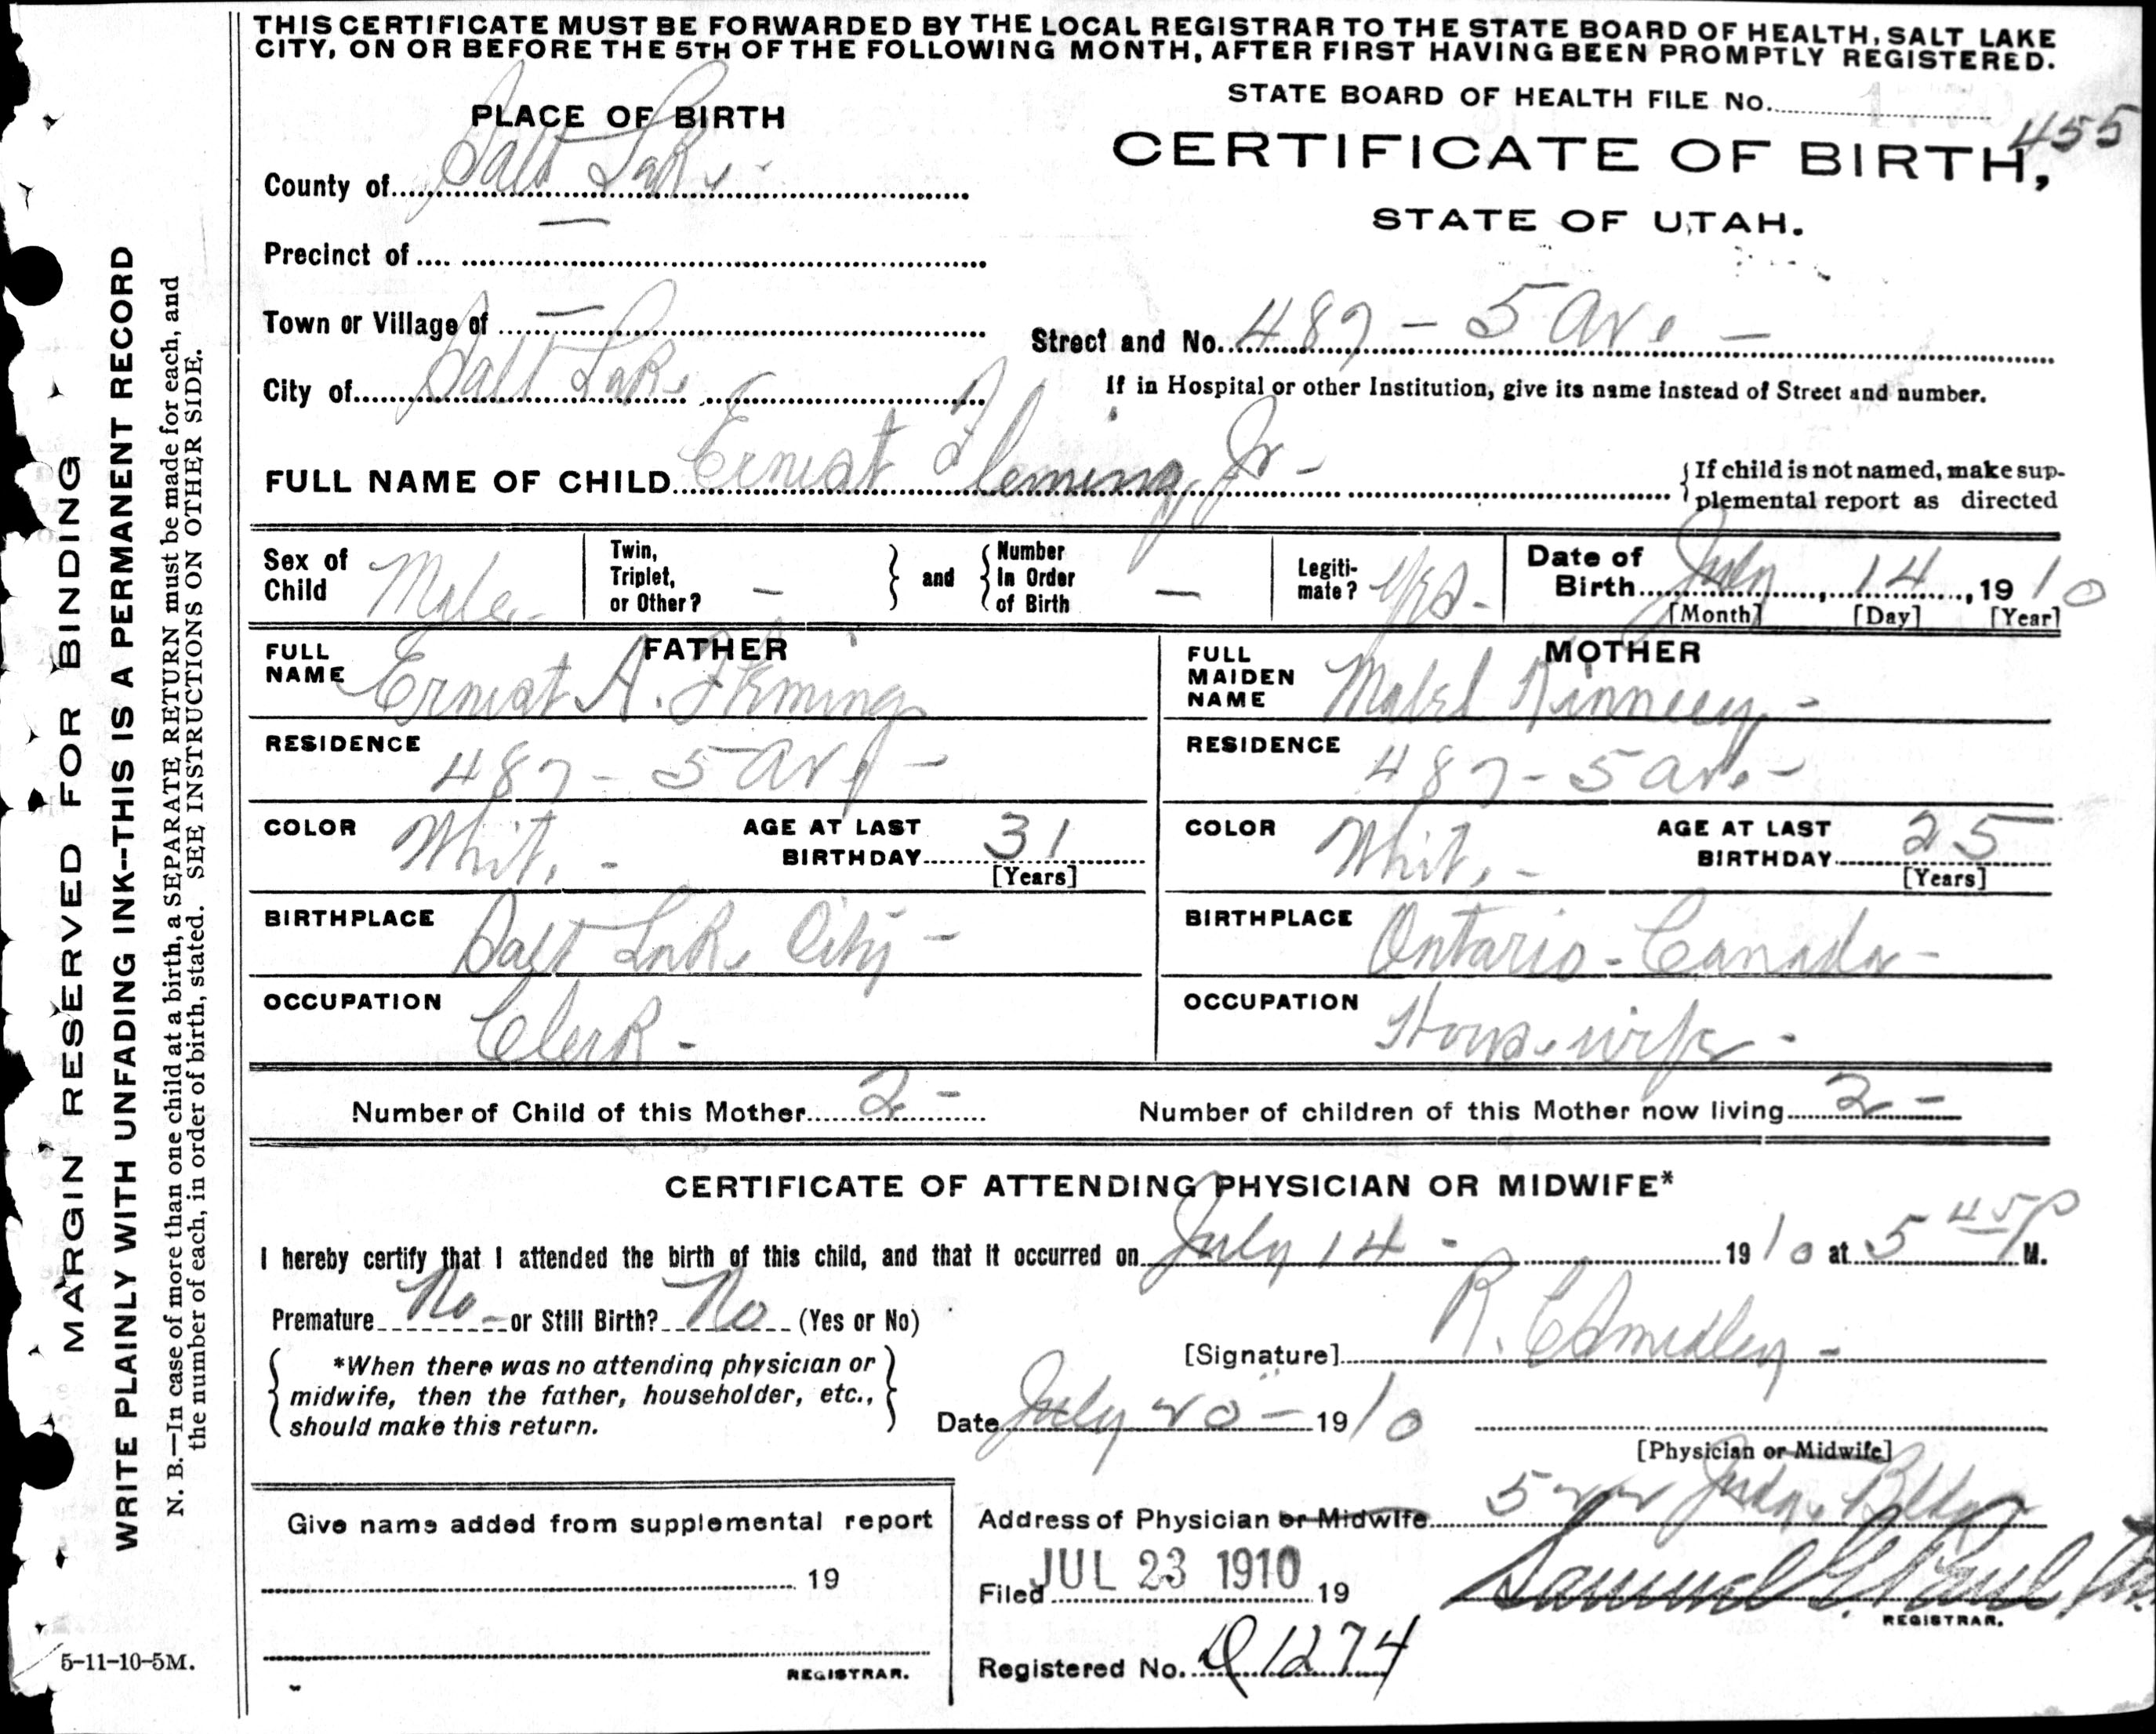 THIS CERTIFICATE MUST BE FORWARDED BY THE LOCAL REGISTRAR TO THE STATE BOARD OF HEALTH, SALT LAKE
CITY, ON OR BEFORE THE 5TH OF THE FOLLOWING MONTH, AFTER FIRST HAVING BEEN PROMPTLY REGISTERED.
STATE BOARD OF HEALTH FILE No.
455
PLACE OF BIRTH
CERTIFICATE OF BIRTH,
STATE OF UTAH.
County of Salt Lake
Precinct of —
Town or Village of —
Street and No. 487 - 5 Ave -
City of Salt Lake
If in Hospital or other Institution, give its name instead of Street and number.
FULL NAME OF CHILD Ernest Fleming Jr -
{If child is not named, make sup-
plemental report as directed
Sex of Child Male -
Twin, Triplet, or Other? — } and { Number In Order of Birth —
Legiti-mate? Yes -
Date of Birth July 14, 1910
[Month] [Day] [Year]
FATHER
FULL NAME Ernest A. Fleming
RESIDENCE 487 - 5 Ave -
COLOR White - AGE AT LAST BIRTHDAY 31
[Years]
BIRTHPLACE Salt Lake City -
OCCUPATION Clerk -
MOTHER
FULL MAIDEN NAME Mabel Kinney -
RESIDENCE 487 - 5 Ave -
COLOR White - AGE AT LAST BIRTHDAY 25
[Years]
BIRTHPLACE Ontario - Canada -
OCCUPATION Housewife -
Number of Child of this Mother 2 -
Number of children of this Mother now living 2 -
CERTIFICATE OF ATTENDING PHYSICIAN OR MIDWIFE*
I hereby certify that I attended the birth of this child, and that it occurred on July 14 - 1910 at 5 45 P M.
Premature No - or Still Birth? No (Yes or No)
[Signature] R. C Smedley -
*When there was no attending physician or
midwife, then the father, householder, etc.,
should make this return.
Date July 20 - 1910
[Physician or Midwife]
Address of Physician or Midwife 522 Judge Bldg
Give name added from supplemental report
19
REGISTRAR.
Filed JUL 23 1910 19
Samuel G. Paul
REGISTRAR.
Registered No. Q 1274
MARGIN RESERVED FOR BINDING
WRITE PLAINLY WITH UNFADING INK--THIS IS A PERMANENT RECORD
N. B.—In case of more than one child at a birth, a SEPARATE RETURN must be made for each, and
the number of each, in order of birth, stated. SEE INSTRUCTIONS ON OTHER SIDE.
5-11-10-5M.